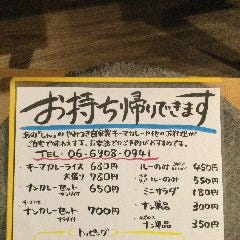 お持ち帰りできます
あの「しゃん」のやみつき自家製キーマカレーや他のお料理が
ご自宅で味わえます。お電話でのご予約がおすすめです。
TEL・06-6908-0941
キーマカレーライス 680円
大盛り 780円
ナンカレーセット 650円
ナンカレーセット 700円
ルーのみ 450円
550円
ミニサラダ 180円
ナン単品 300円
ナン単品 350円
トッピング